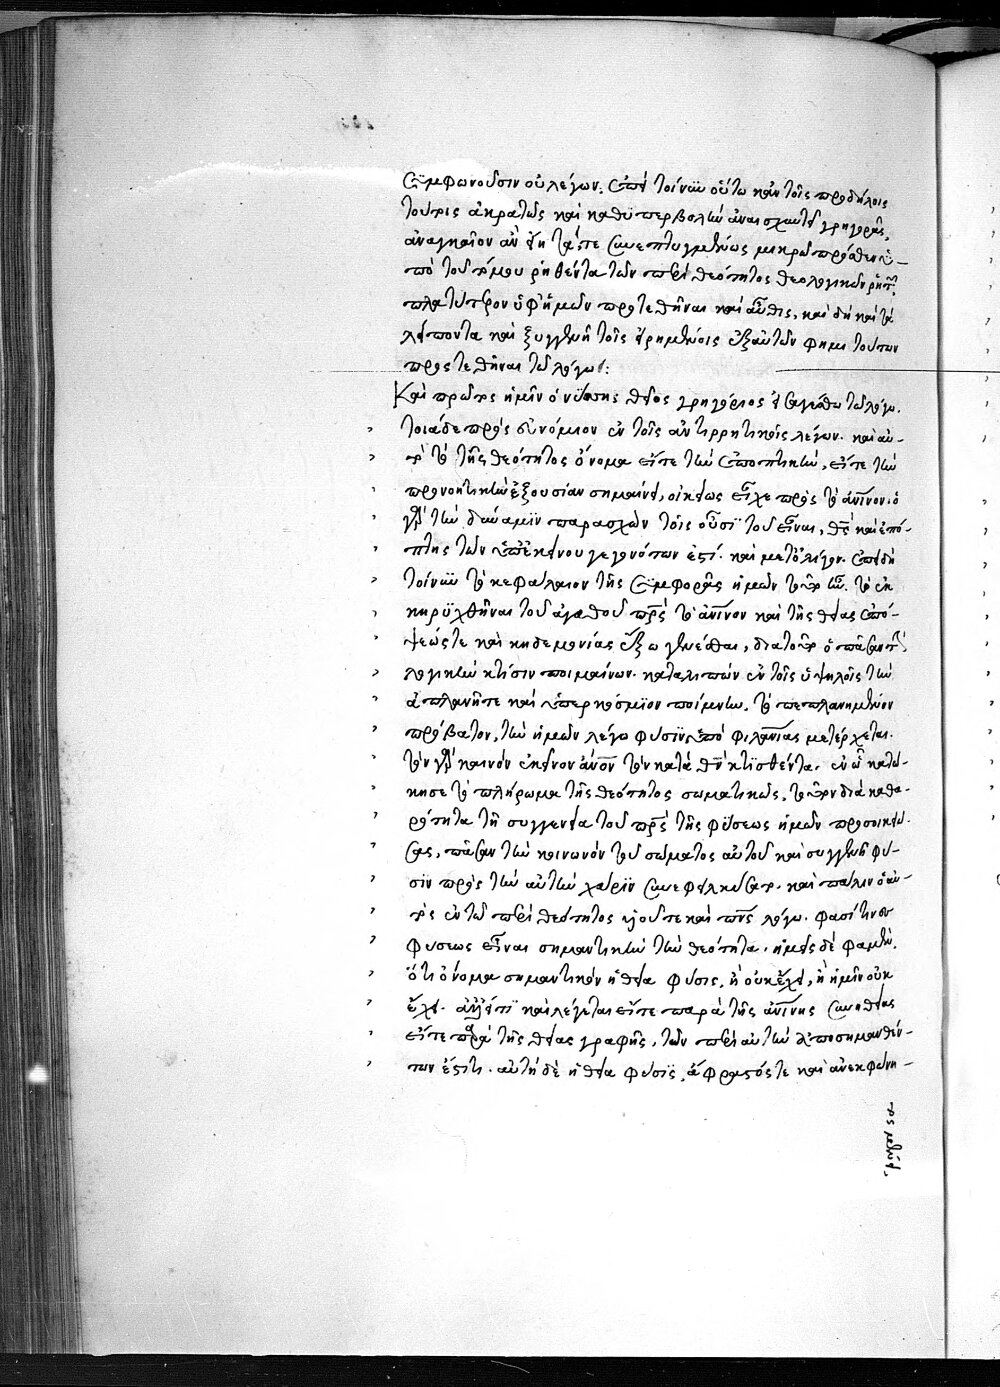 συμφωνοῦσιν οὐ λέγων. ἐπεὶ τοίνυν οὕτω κἀν τοῖς προδήλοις
τούτοις ἀκρατῶς καὶ καθ' ὑπερβολὴν ἀναισχυντεῖ γρηγορᾶς,
ἀναγκαῖον ἂν εἴη τά τε συνεπτυγμένως μικρῷ πρόσθεν ὑ-
πὸ τοῦ τόμου ῥηθέντα τῶν περὶ θεότητος θεολογικῶν ῥητῶν
πλατύτερον ὑφ' ἡμῶν προτεθῆναι καὶ αὖθις, καὶ δὴ καὶ τὰ
λείποντα καὶ ξυγγενῆ τοῖς εἰρημένοις ἐξ αὐτῶν φημι τούτων
προστεθῆναι τῷ λόγῳ:
Καὶ πρῶτος ἡμῖν ὁ νύσσης θεῖος γρηγόριος εἰσαγέσθω τῷ λόγῳ.
τοιάδε πρὸς εὐνόμιον ἐν τοῖς ἀντιρρητικοῖς λέγων. καὶ αὐ-
τὸ τὸ τῆς θεότητος ὄνομα εἴτε τὴν ἐποπτικὴν, εἴτε τὴν
προνοητικὴν ἐξουσίαν σημαίνει, οἰκείως ἔχει πρὸς τὸ ἀνθρώπινον. ὁ
γὰρ τὴν δύναμιν παρασχὼν τοῖς οὖσι τοῦ εἶναι, θεὸς καὶ ἐπό-
πτης τῶν ὑπ' ἐκείνου γεγονότων ἐστί. καὶ μετ' ὀλίγον. ἐπειδὴ
τοίνυν τὸ κεφάλαιον τῆς συμφορᾶς ἡμῶν τοῦτο ἦν. τὸ ἐκ
κηρυχθῆναι τοῦ ἀγαθοῦ πατρὸς τὸ ἀνθρώπινον καὶ τῆς θείας ἐπό-
ψεώς τε καὶ κηδεμονίας ἔξω γενέσθαι, διατοῦτο ὁ πᾶσαν τὴν
λογικὴν κτίσιν ποιμαίνων. καταλιπὼν ἐν τοῖς ὑψηλοῖς τὴν
ἀπλανῆ τε καὶ ὑπερκόσμιον ποίμνην. τὸ πεπλανημένον
πρόβατον, τὴν ἡμῶν λέγω φύσιν ὑπὸ φιλανθρωπίας μετέρχεται.
τὸν γὰρ καινὸν ἐκεῖνον ἄνθρωπον τὸν κατὰ θεὸν κτισθέντα. ἐν ᾧ κατῴ-
κησε τὸ πλήρωμα τῆς θεότητος σωματικῶς, τοῦτον διὰ καθα-
ρότητα τῇ συγγενείᾳ τοῦ πατρὸς τῆς φύσεως ἡμῶν προσοικειώ-
σας, πᾶσαν τὴν κοινωνὸν τοῦ σώματος αὐτοῦ καὶ συγγενῆ φύ-
σιν πρὸς τὴν αὐτὴν χάριν συνεφειλκύσατο. καὶ πάλιν ὁ αὐ-
τὸς ἐν τῷ περὶ θεότητος υἱοῦ τε καὶ πνεύματος λόγῳ. φασί τινα
φύσεως εἶναι σημαντικὴν τὴν θεότητα. ἡμεῖς δέ φαμεν.
ὅτι ὄνομα σημαντικὸν ἡ θεία φύσις, ἢ οὐκ ἔχει, ἢ ἡμῖν οὐκ
ἔχει. ἀλλ' εἴ τι καὶ λέγεται εἴτε παρὰ τῆς ἀνθρωπίνης συνηθείας
εἴτε παρὰ τῆς θείας γραφῆς, τῶν περὶ αὐτὴν ἀποσημανθέν-
των ἐστί. αὐτὴ δὲ ἡ θεία φύσις, ἄφραστός τε καὶ ἀνεκφώνη-